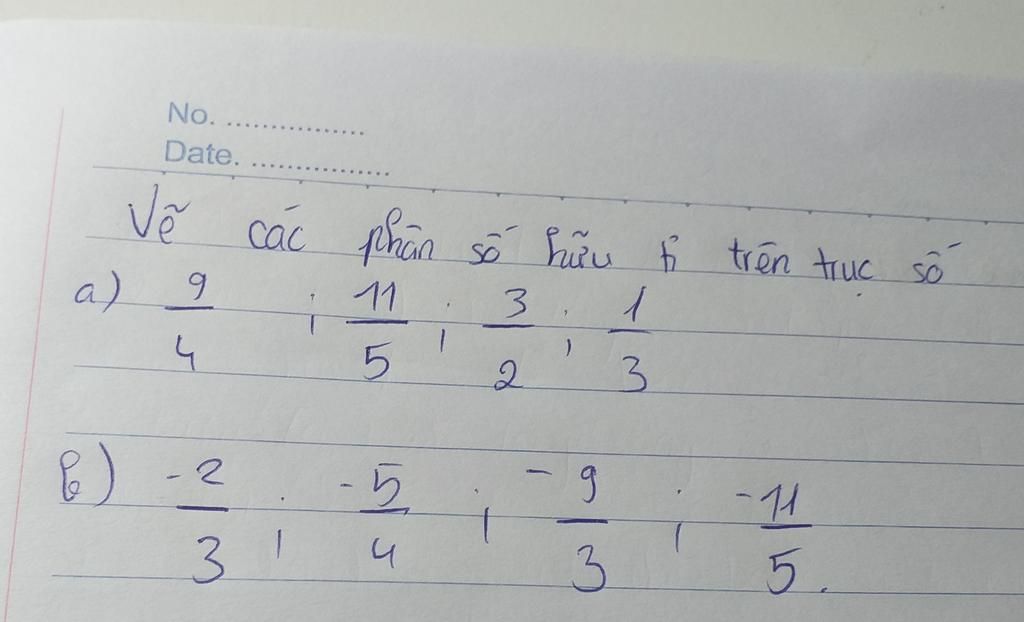 No. ................
Date. ................
Vẽ các phân số hữu tỉ trên trục số
a) 9/4 ; 11/5 ; 3/2 ; 1/3
b) -2/3 ; -5/4 ; -9/3 ; -11/5.